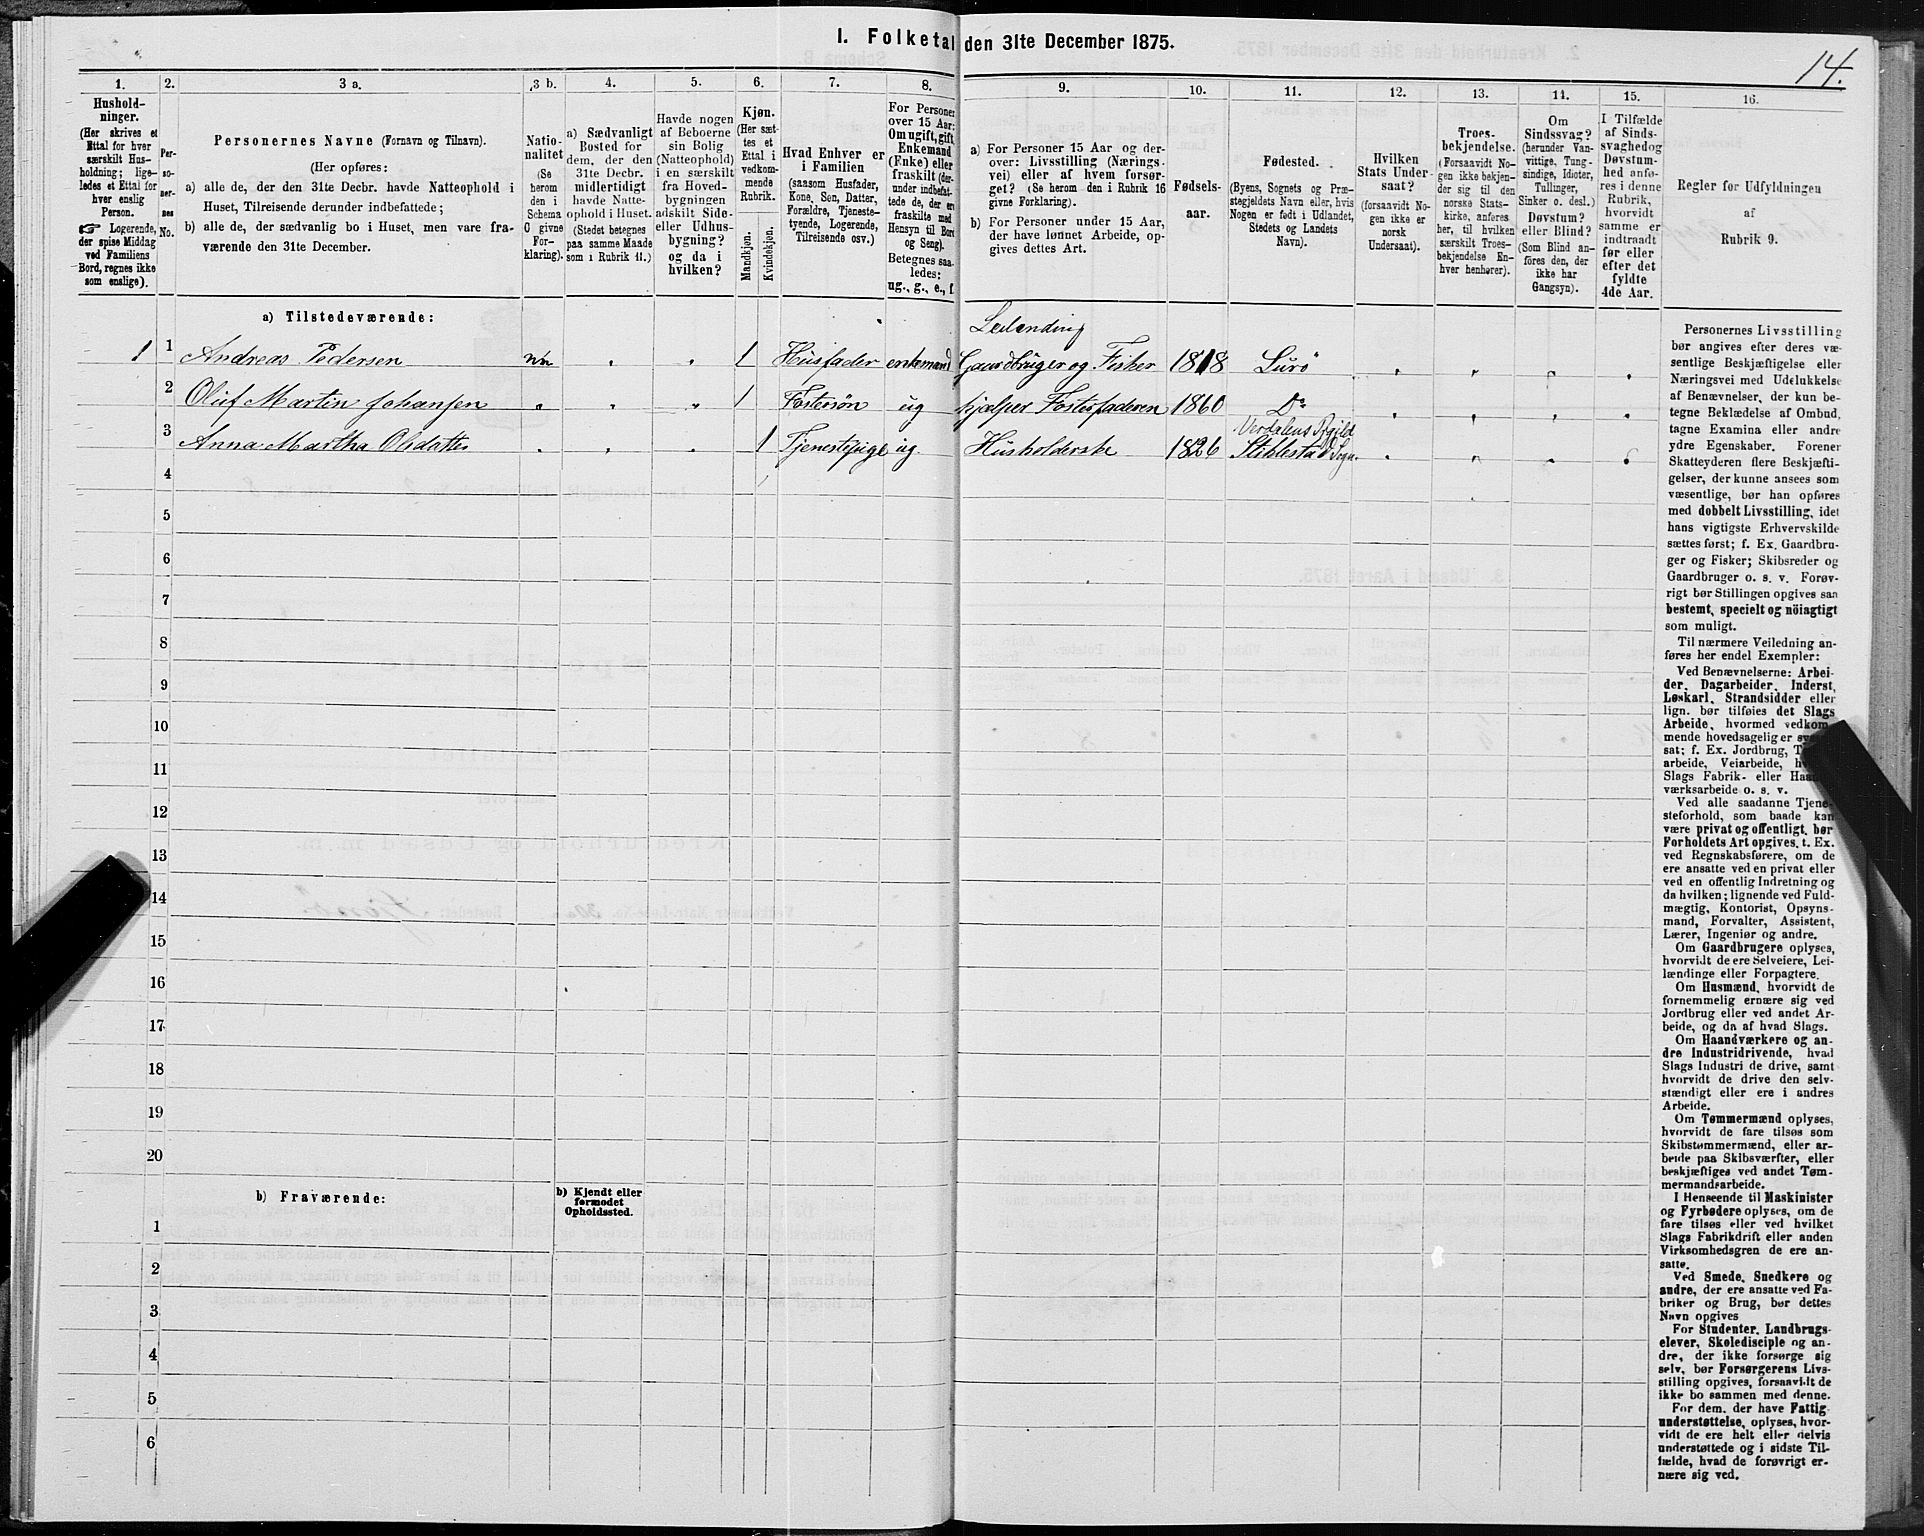 I. Folketal den 31te December 1875.
14.
1.
Hushold-
ninger.
(Her skrives et
Ettal for hver
særskilt Hus-
holdning; lige-
ledes et Ettal for
hver enslig
Person.
☞ Logerende,
der spise Middag
ved Familiens
Bord, regnes ikke
som enslige).
2.
Per-
so-
ner-
nes
No.
3 a.
Personernes Navne (Fornavn og Tilnavn).
(Her opføres:
a) alle de, der den 31te Decbr. havde Natteophold i
Huset, Tilreisende derunder indbefattede;
b) alle de, der sædvanlig bo i Huset, men vare fra-
værende den 31te December.
3 b.
Natio-
nalitet
(Se
herom
den i
Schema
C givne
For-
klaring).
4.
a) Sædvanligt
Bosted for
dem, der den
31te Decbr.
midlertidigt
havde Natte-
ophold i Huset.
(Stedet betegnes
paa samme Maade
som i Rubrik 11.)
5.
Havde nogen
af Beboerne
sin Bolig
(Natteophold)
i en særskilt
fra Hoved-
bygningen
adskilt Side-
eller Udhus-
bygning?
og da i
hvilken?
6.
Kjøn.
(Her sæt-
tes et
Ettal i
vedkom-
mende
Rubrik.
Mandkjøn.
Kvindekjøn.
7.
Hvad Enhver er
i Familien
(saasom Husfader,
Kone, Søn, Datter,
Forældre, Tjeneste-
tyende, Logerende,
Tilreisende osv.)
8.
For Personer
over 15 Aar:
Om ugift, gift,
Enkemand
(Enke) eller
fraskilt (der-
under indbefat-
tede de, der ere
fraskilte med
Hensyn til Bord
og Seng).
Betegnes saa-
ledes:
ug., g., e., f.
9.
a) For Personer 15 Aar og der-
over: Livsstilling (Nærings-
vei) eller af hvem forsør-
get? (Se herom den i Rubrik 16
givne Forklaring).
b) For Personer under 15 Aar,
der have lønnet Arbeide, op-
gives dettes Art.
10.
Fødsels-
aar.
11.
Fødested.
(Byens, Sognets og Præ-
stegjeldets Navn eller, hvis
Nogen er født i Udlandet,
Stedets og Landets
Navn).
12.
Hvilken
Stats Under-
saat?
(forsaavidt No-
gen ikke er
norsk
Undersaat).
13.
Troes-
bekjendelse.
(Forsaavidt No-
gen ikke bekjen-
der sig til den
norske Stats-
kirke, anføres
her, til hvilken
særskilt Troes-
bekjendelse En-
hver henhører).
14.
Om
Sindssvag?
(herunder Van-
vittige, Tung-
sindige, Idioter,
Tullinger,
Sinker o. desl.)
Døvstum?
eller Blind?
(Som Blind an-
føres den, der
ikke har
Gangsyn).
15.
I Tilfælde
af Sinds-
svaghed og
Døvstum-
hed anfø-
res i denne
Rubrik,
hvorvidt
samme er
indtraadt
før eller
efter det
fyldte
4de Aar.
16.
Regler for Udfyldningen
af
Rubrik 9.
a) Tilstedeværende:
Leilending
1 1 Andreas Pedersen nn " " 1 Husfader enkemand Gaardbruger og Fisker 1818 Lurö " " " "
2 Oluf Martin Johansen " " " 1 Fostersön ug hjælper Fosterfaderen 1860 Do " " " "
Verdalens Pgjld
3 Anna Martha Olsdatter " " " 1 Tjenestepige ug Husholderske 1826 Stiklestad Sogn " " " "
4
5
6
7
8
9
10
11
12
13
14
15
16
17
18
19
20
b) Fraværende:
b) Kjendt eller
formodet
Opholdssted.
1
2
3
4
5
6
Personernes Livsstilling
bør angives efter deres væ-
sentlige Beskjæftigelse eller
Næringsvei med Udelukkelse
af Benævnelser, der kun be-
tegne Beklædelse af Ombud,
tagne Examina eller andre
ydre Egenskaber. Forener
Skatteyderen flere Beskjæfti-
gelser, der kunne ansees som
væsentlige, bør han opføres
med dobbelt Livsstilling, idet
hans vigtigste Erhvervskilde
sættes først; f. Ex. Gaardbru-
ger og Fisker; Skibsreder og
Gaardbruger o. s. v. Forøv-
rigt bør Stillingen opgives saa
bestemt, specielt og nöiagtigt
som muligt.
Til nærmere Veiledning an-
føres her endel Exempler:
Ved Benævnelserne: Arbei-
der, Dagarbeider, Inderst,
Løskarl, Strandsidder eller
lign. bør tilføies det Slags
Arbeide, hvormed vedkom-
mende hovedsagelig er
sat; f. Ex. Jordbrug,
arbeide, Veiarbeide,
Slags Fabrik- eller
værksarbeide o. s. v.
Ved alle saadanne Tjene-
steforhold, som baade kan
være privat og offentligt, bør
Forholdets Art opgives, t. Ex.
ved Regnskabsførere, om de
ere ansatte ved en privat eller
ved en offentlig Indretning og
da hvilken; lignende ved Fuld-
mægtig, Kontorist, Opsyns-
mand, Forvalter, Assistent,
Lærer, Ingeniør og andre.
Om Gaardbrugere oplyses,
hvorvidt de ere Selveiere, Lei-
lændinge eller Forpagtere.
Om Husmænd, hvorvidt de
fornemmelig ernære sig ved
Jordbrug eller ved andet Ar-
beide, og da af hvad Slags.
Om Haandværkere og an-
dre Industridrivende, hvad
Slags Industri de drive, samt
hvorvidt de drive den selv-
stændigt eller ere i andres
Arbeide.
Om Tømmermænd oplyses,
hvorvidt de fare tilsøs som
Skibstømmermænd, eller ar-
beide paa Skibsværfter, eller
beskjæftiges ved andet Tøm-
mermandsarbeide.
I Henseende til Maskinister
og Fyrbødere oplyses, om de
fare tilsøs eller ved hvilket
Slags Fabrikdrift eller anden
Virksomhedsgren de ere an-
satte.
Ved Smede, Snedkere og
andre, der ere ansatte ved Fa-
briker og Brug, bør dettes
Navn opgives
For Studenter, Landbrugs-
elever, Skoledisciple og an-
dre, der ikke forsørge sig
selv, bør Forsørgerens Livs-
stilling opgives, forsaavidt de
ikke bo sammen med denne.
For dem, der have Fattig-
understøttelse, oplyses, hvor-
vidt de ere helt eller delvis
understøttede og i sidste Til-
fælde, hvad de forøvrigt er-
nære sig ved.